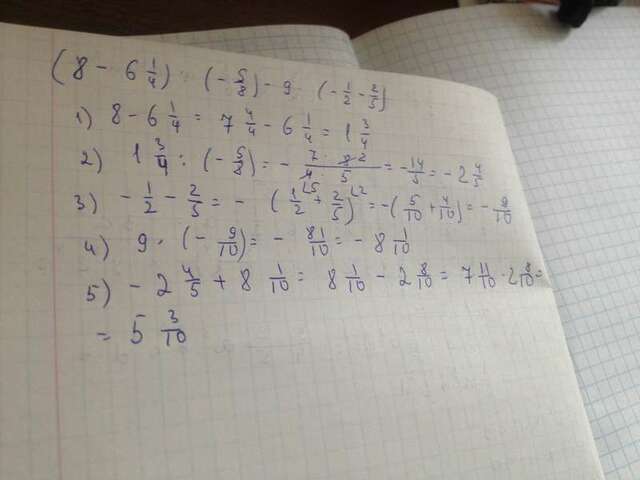 (8 - 6 1/4) : (- 5/8) - 9 · (- 1/2 - 2/5)
1) 8 - 6 1/4 = 7 4/4 - 6 1/4 = 1 3/4
2) 1 3/4 : (- 5/8) = - 7 · 8 2 / 4 · 5 = - 14/5 = - 2 4/5
3) - 1/2 - 2/5 = - (1/2 + 2/5) = - (5/10 + 4/10) = - 9/10
4) 9 · (- 9/10) = - 81/10 = - 8 1/10
5) - 2 4/5 + 8 1/10 = 8 1/10 - 2 8/10 = 7 11/10 · 2 8/10 =
= 5 3/10